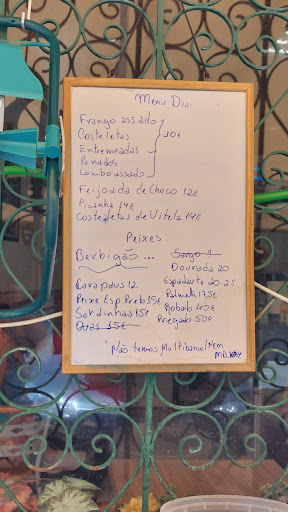 Menu Dia
Frango assado
Costeletas
Entremeadas
Panados
Lombo assado
10€
Feijoada de Choco 12€
Picanha 14€
Costeletas de Vitela 14€
Peixes:
Berbigão ...
Sargo
Dourada 20
Carapaus 12
Espadarte 20.25
Peixe Esp. Preto 15€
Palmeta 17,5€
Sardinhas 15€
Robalo 40€
Ovas 15€
Pregado 50€
Não temos Multibanco/Nem
MB. WAY